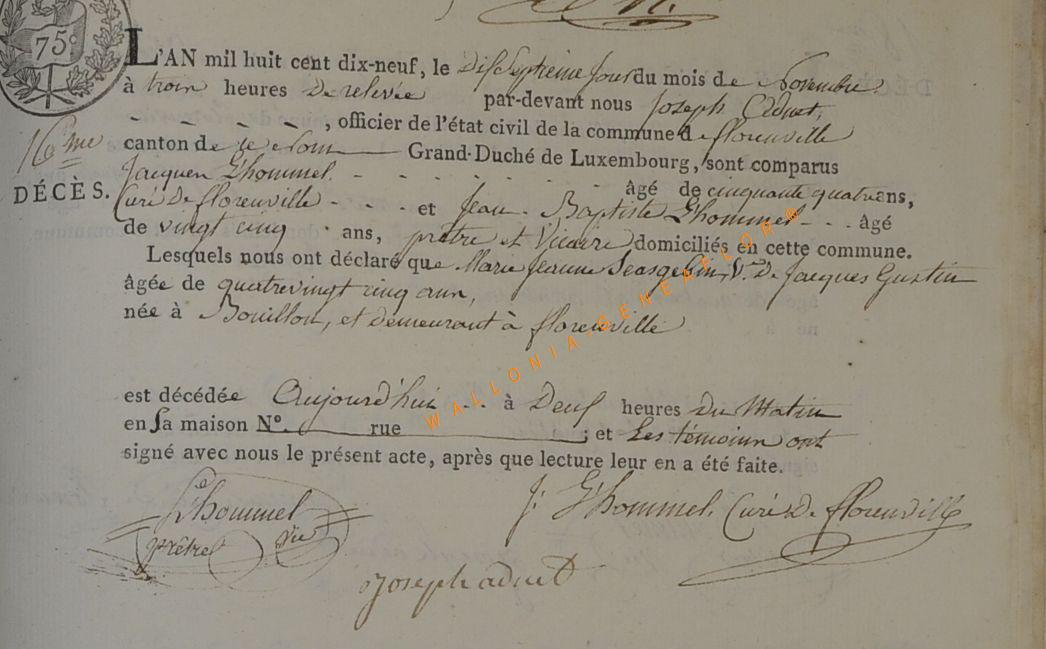 75c
L'AN mil huit cent dix-neuf, le Dixseptieme jour du mois de Novembre
à trois heures De relevée par-devant nous Joseph Adnet,
16eme
, officier de l'état civil de la commune de florenville
canton de ce nom Grand-Duché de Luxembourg, sont comparus
Jacques L'hommel - - - - - - âgé de cinquante quatre ans,
DÉCÈS.
Curé De florenville - - - et Jean - Baptiste Lhommel - - âgé
de vingt cinq - ans, prêtre et Vicaire domiciliés en cette commune.
Lesquels nous ont déclaré que Marie Jeanne V.e De Jacques Gustin
âgée de quatrevingt cinq ans,
née à Bouillon, et demeurant à florenville
est décédée Aujourd'hui - - à Deux heures Du Matin
en sa maison N°. rue ; et Les témoins ont
signé avec nous le présent acte, après que lecture leur en a été faite.
L'hommel J: L'hommel, Curé De florenville
prêtre vic
Joseph adnet
WALLONIA-GENEALOR®